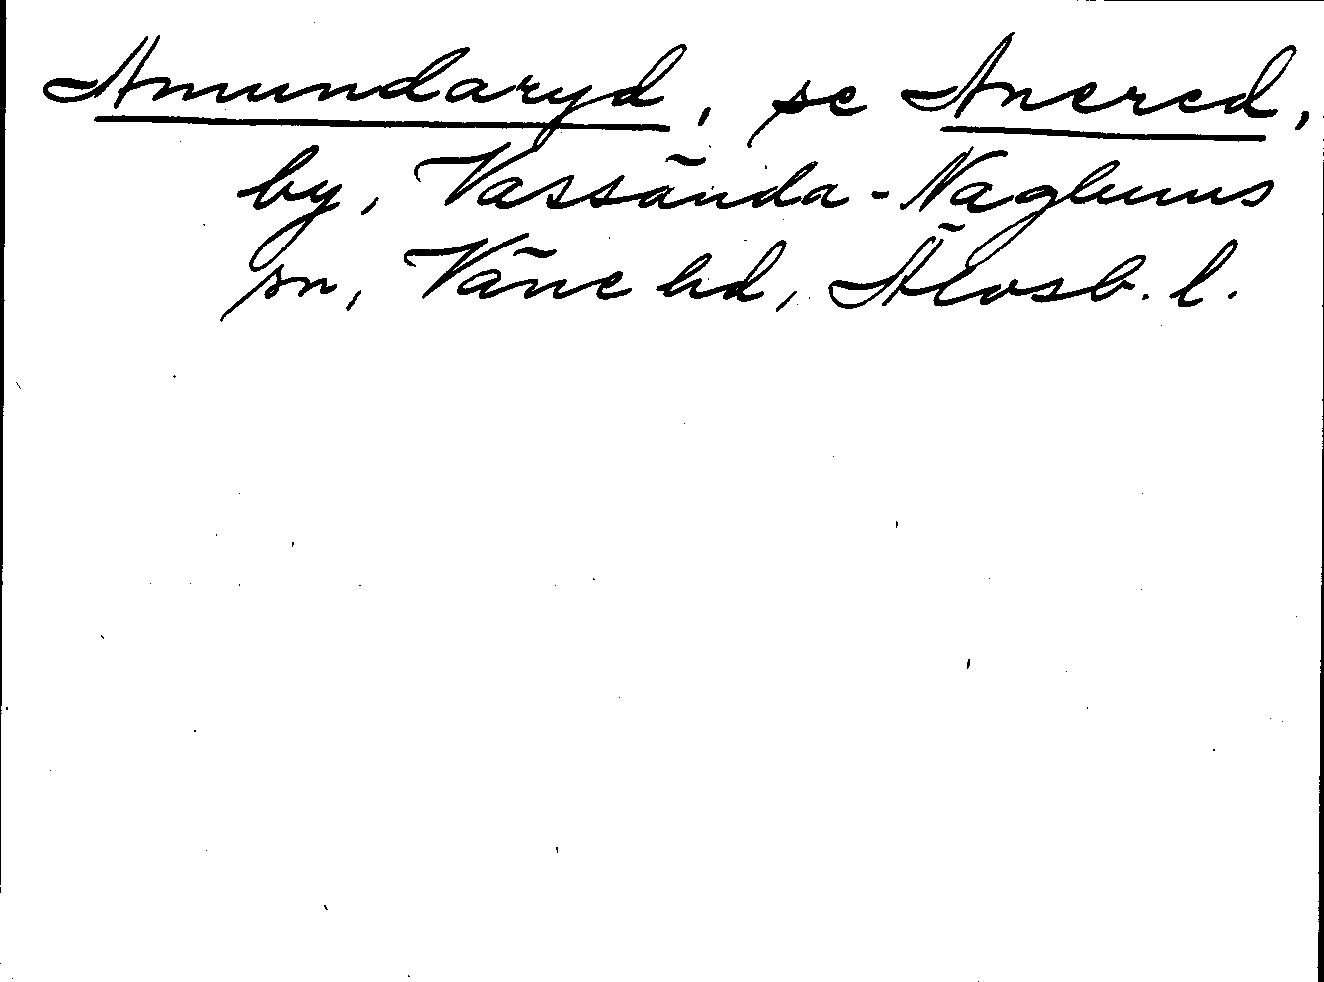 Amundaryd, se Anered,
by, Vassända-Naglums
sn, Väne hd, Älvsb. l.